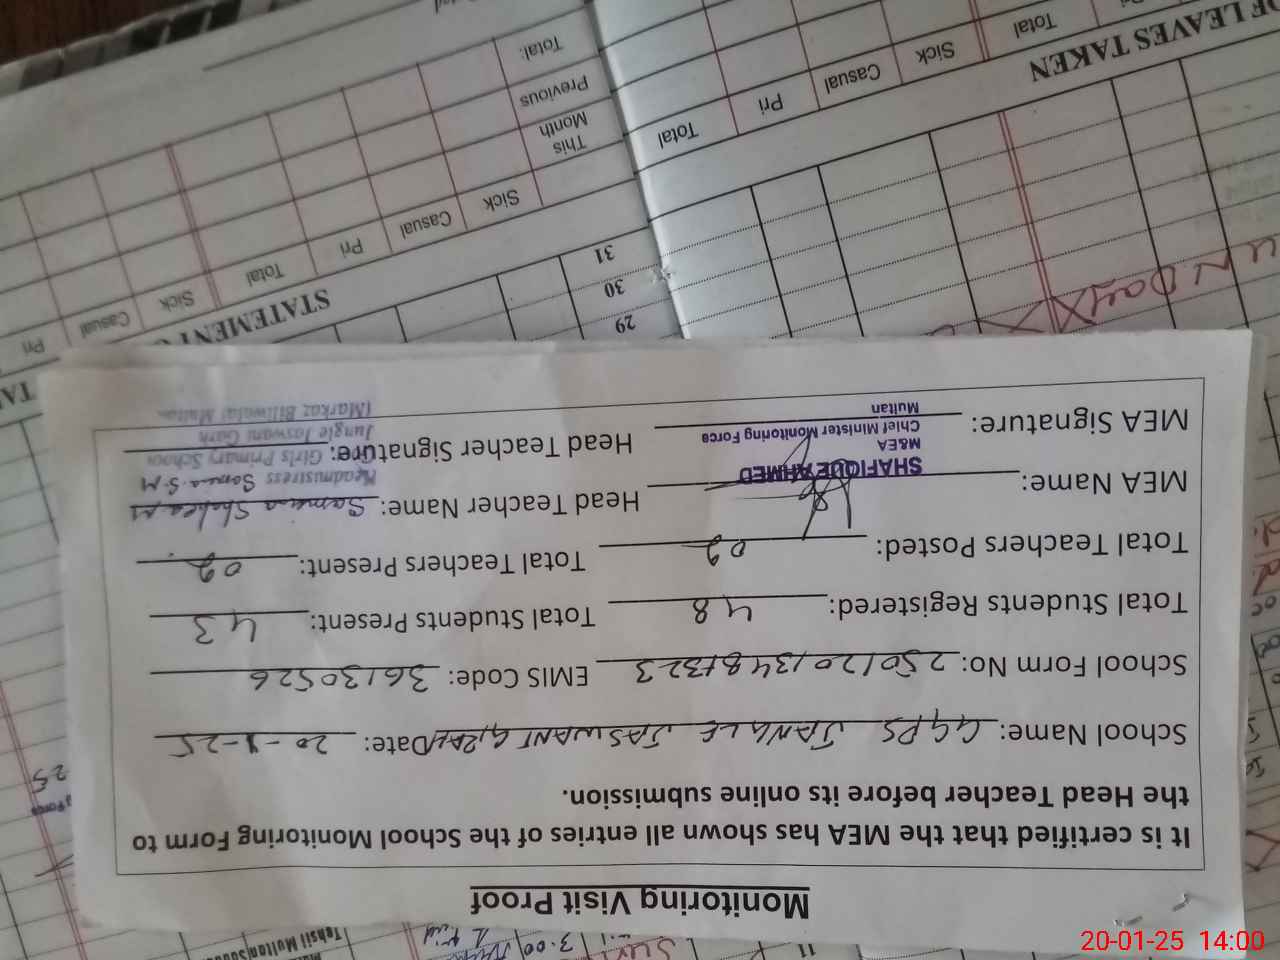 Monitoring Visit Proof
It is certified that the MEA has shown all entries of the School Monitoring Form to
the Head Teacher before its online submission.
School Name: GGPS JANGLE JASWANT GRAH Date: 20-1-25
School Form No: 25012013481323 EMIS Code: 36130526
Total Students Registered: 48 Total Students Present: 43
Total Teachers Posted: 02 Total Teachers Present: 02
MEA Name: Head Teacher Name: Samina
SHAFIQUE AHMED
M&EA
Chief Minister Monitoring Force
Multan
MEA Signature: Head Teacher Signature:
Headmistress
Girls Primary School
Jungle Jaswant Garh
(Markaz Billiwala) Multan
29
30
31
STATEMENT
OF LEAVES TAKEN
Pri Casual Sick Total Pri Casual Sick
Total Pri Casual Sick Total
This
Month
Previous
Total:
Tehsil Multan
11
3.00
20-01-25 14:00